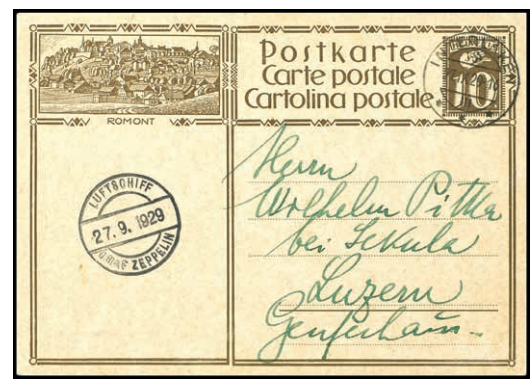 Postkarte
Carte postale
Cartolina postale
10
ROMONT
LUFTSCHIFF
27. 9. 1929
GRAF ZEPPELIN
Herrn
Wilhelm Pittka
bei Sekula
Luzern